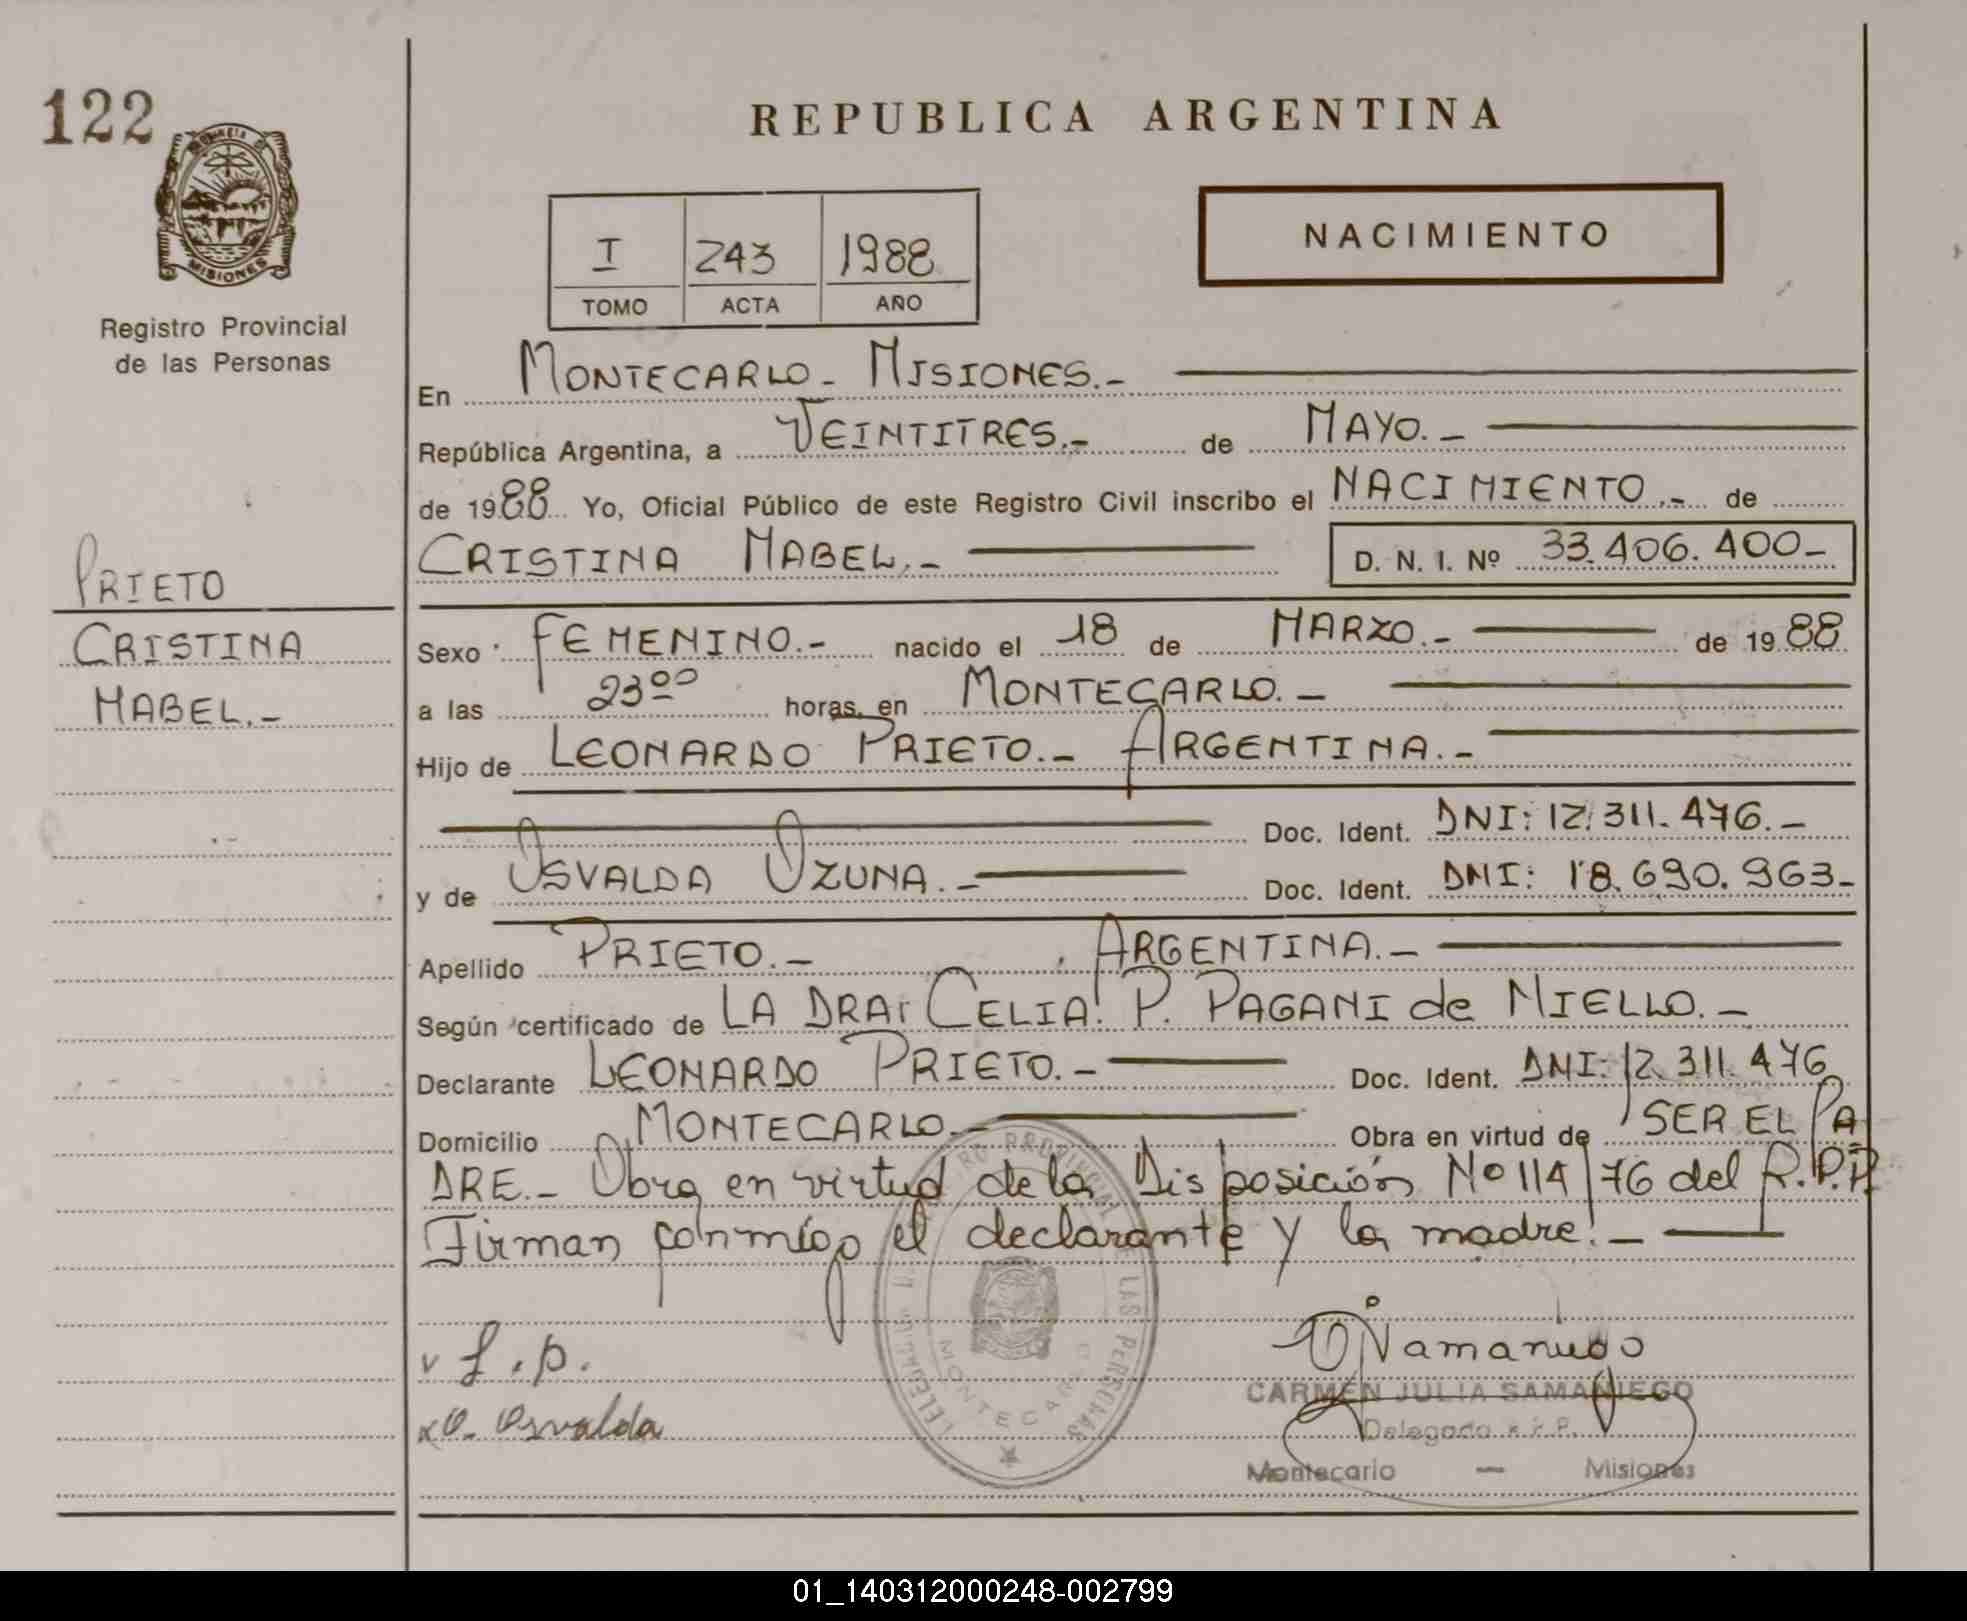 122
PROVINCIA DE
MISIONES
Registro Provincial
de las Personas
REPUBLICA ARGENTINA
I 243 1988
TOMO ACTA AÑO
NACIMIENTO
En MONTECARLO - MISIONES.-
República Argentina, a VEINTITRES.- de MAYO.-
de 1988 Yo, Oficial Público de este Registro Civil inscribo el NACIMIENTO.- de
CRISTINA MABEL.- D. N. I. Nº 33.406.400-
PRIETO
CRISTINA
MABEL.-
Sexo FEMENINO.- nacido el 18 de MARZO.- de 1988
a las 23⁰⁰ horas, en MONTECARLO.-
Hijo de LEONARDO PRIETO.- ARGENTINA.-
Doc. Ident. DNI: 12.311.476.-
y de OSVALDA OZUNA.- Doc. Ident. DNI: 18.690.963-
Apellido PRIETO.- ARGENTINA.-
Según certificado de LA DRA: CELIA P. PAGANI de NIELLO.-
Declarante LEONARDO PRIETO.- Doc. Ident. DNI: 12.311.476
Domicilio MONTECARLO.- Obra en virtud de SER EL PA
DRE.- Obra en virtud de la Disposición Nº 114/76 del R.P.P.
Firman conmigo el declarante y la madre.-
REGISTRO PROVINCIAL DE LAS PERSONAS
MONTECARLO
L.P.
O. Osvalda
CARMEN JULIA SAMANIEGO
Delegada R.P.P.
Montecarlo - Misiones
01_140312000248-002799